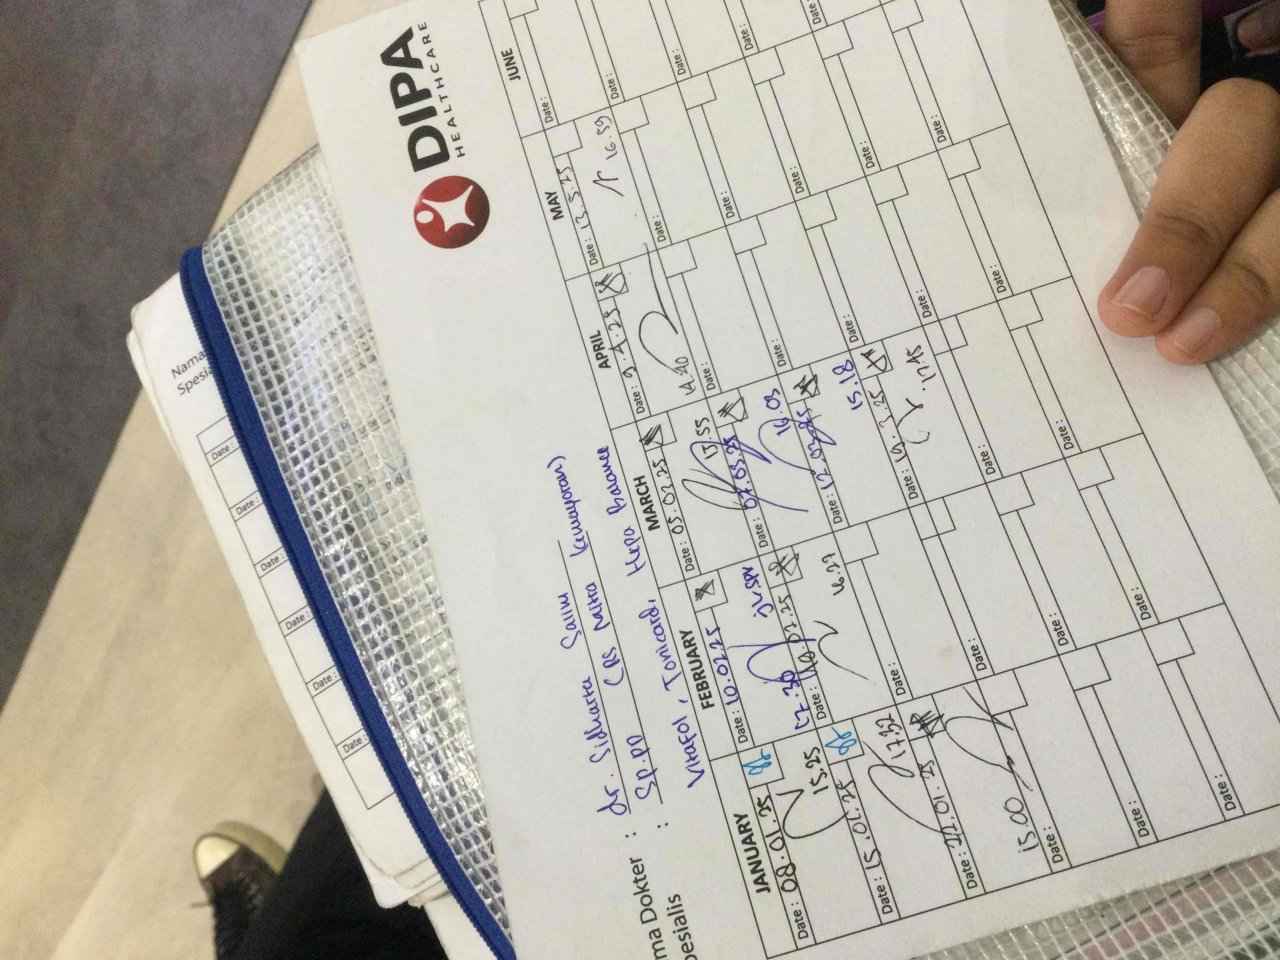 DIPA
HEALTHCARE
ma Dokter : dr. Sidharta Salim
pesialis : Sp.PD (RS Mitra Kemayoran)
Vitafol, Tonicard, Hepa Balance
JANUARY FEBRUARY MARCH APRIL MAY JUNE
Date: 08.01.25
15.25
Date: 15.01.25
17.32
Date: 22.01.25
15.00
Date:
Date:
Date: 10.02.25
17.30
Date:
16.27
Date:
Date:
Date:
Date:
Date: 05.03.25
17.55
Date: 07.03.25
16.03
Date: 12.03.25
15.18
Date:
17.45
Date:
Date:
Date: 9.4.25
14.20
Date:
Date:
Date:
Date:
Date: 13.5.25
16.59
Date:
Date:
Date:
Date:
Date:
Date:
Date:
Date:
Date:
Nama
Spesia
Date:
Date:
Date:
Date:
Date:
Date: